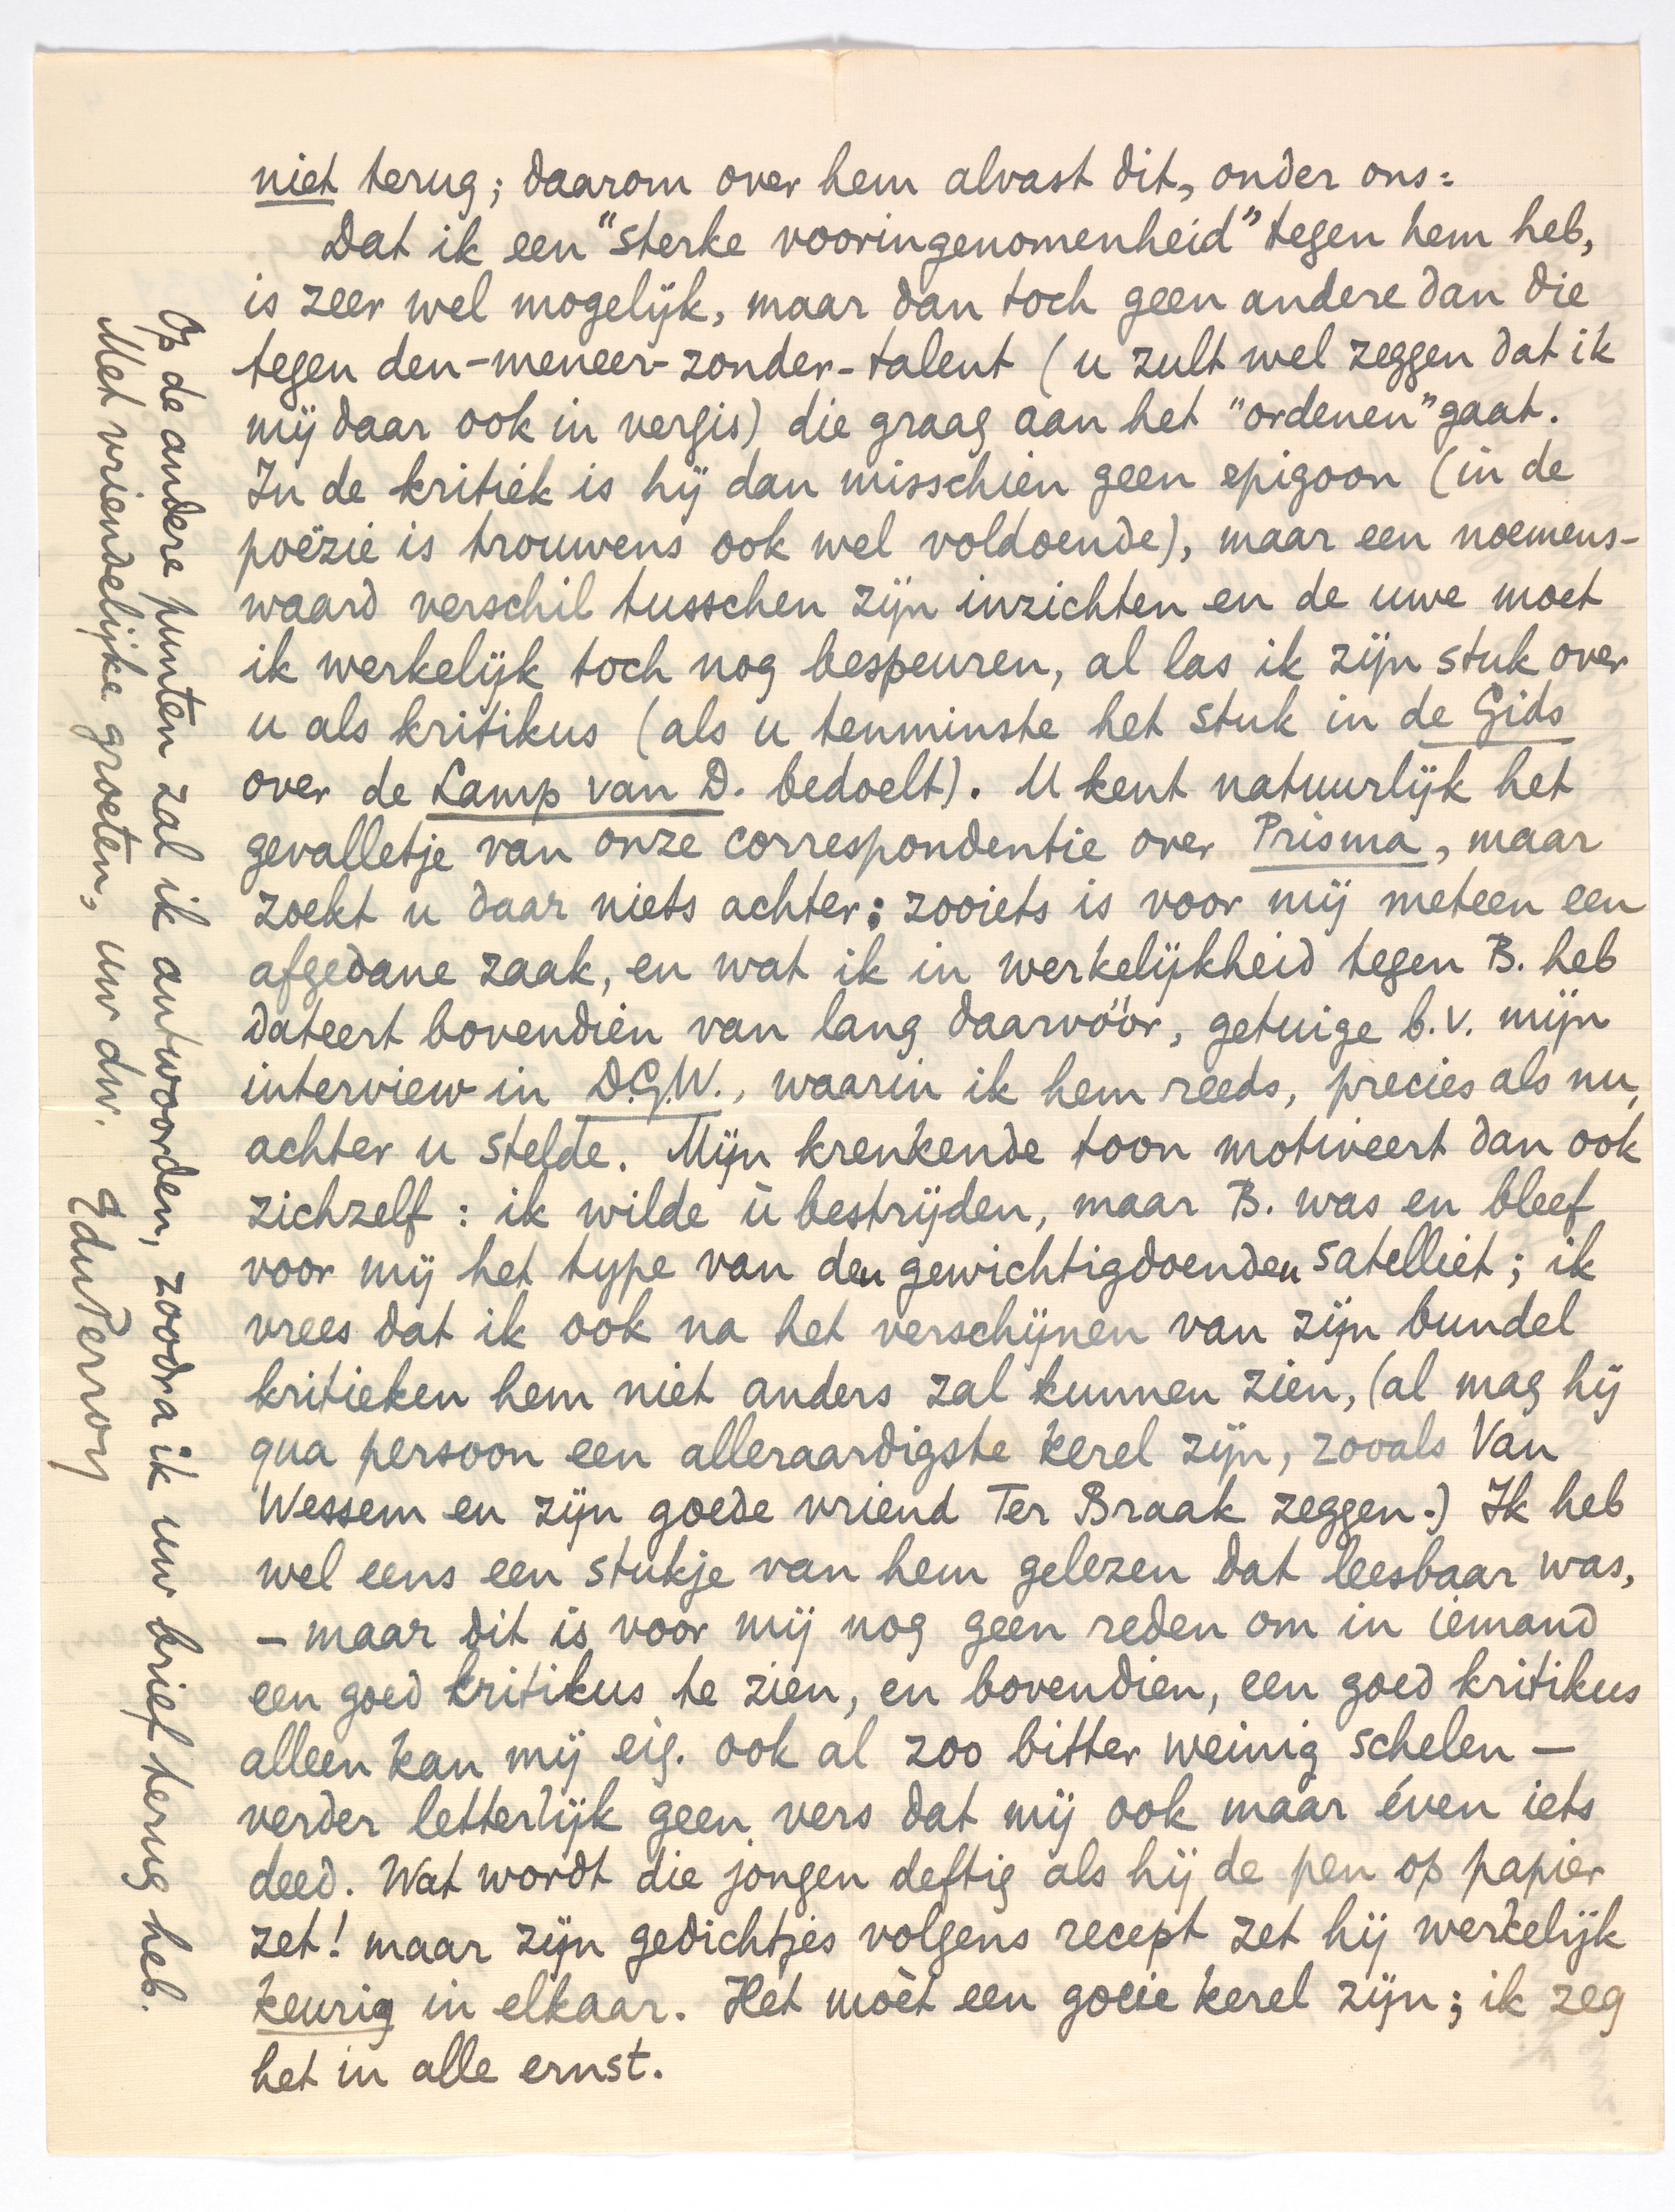 niet terug; daarom over hem alvast dit, onder ons:
Dat ik een "sterke vooringenomenheid" tegen hem heb,
is zeer wel mogelijk, maar dan toch geen andere dan die
tegen den-meneer-zonder-talent (u zult wel zeggen dat ik
mij daar ook in vergis) die graag aan het "ordenen" gaat.
In de kritiek is hij dan misschien geen epigoon (in de
poëzie is trouwens ook wel voldoende), maar een noemens-
waard verschil tusschen zijn inzichten en de uwe moet
ik werkelijk toch nog bespeuren, al las ik zijn stuk over
u als kritikus (als u tenminste het stuk in de Gids
over de Lamp van D. bedoelt). U kent natuurlijk het
gevalletje van onze correspondentie over Prisma, maar
zoekt u daar niets achter: zooiets is voor mij meteen een
afgedane zaak, en wat ik in werkelijkheid tegen B. heb
dateert bovendien van lang daarvóór, getuige b.v. mijn
interview in D.G.W., waarin ik hem reeds, precies als nu,
achter u stelde. Mijn krenkende toon motiveert dan ook
zichzelf: ik wilde ù bestrijden, maar B. was en bleef
voor mij het type van den gewichtigdoenden satelliet; ik
vrees dat ik ook na het verschijnen van zijn bundel
kritieken hem niet anders zal kunnen zien, (al mag hij
qua persoon een alleraardigste kerel zijn, zooals Van
Wessem en zijn goede vriend Ter Braak zeggen.) Ik heb
wel eens een stukje van hem gelezen dat leesbaar was,
– maar dit is voor mij nog geen reden om in iemand
een goed kritikus te zien, en bovendien, een goed kritikus
alleen kan mij eig. ook al zoo bitter weinig schelen –
verder letterlijk geen vers dat mij ook maar éven iets
deed. Wat wordt die jongen deftig als hij de pen op papier
zet! maar zijn gedichtjes volgens recept zet hij werkelijk
keurig in elkaar. Het mòèt een goeie kerel zijn; ik zeg
het in alle ernst.
Op de andere punten zal ik antwoorden, zoodra ik uw brief terug heb.
Met vriendelijke groeten, uw dw.
EduPerron